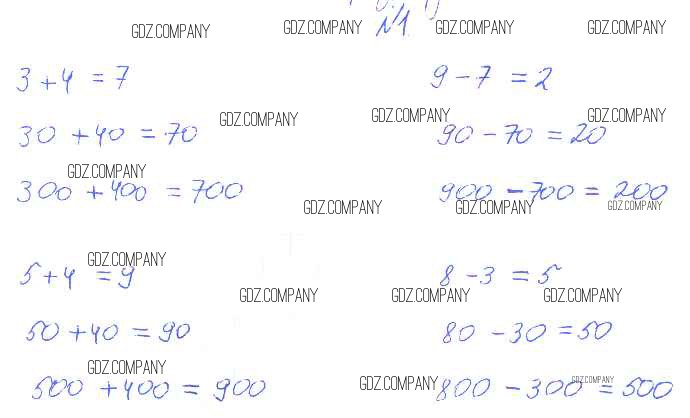 GDZ.COMPANY GDZ.COMPANY №1. GDZ.COMPANY GDZ.COMPANY
3 + 4 = 7
9 - 7 = 2
GDZ.COMPANY GDZ.COMPANY GDZ.COMPANY
30 + 40 = 70
90 - 70 = 20
GDZ.COMPANY
300 + 400 = 700
900 - 700 = 200
GDZ.COMPANY GDZ.COMPANY GDZ.COMPANY
GDZ.COMPANY
5 + 4 = 9
8 - 3 = 5
GDZ.COMPANY GDZ.COMPANY GDZ.COMPANY
50 + 40 = 90
80 - 30 = 50
GDZ.COMPANY
500 + 400 = 900
GDZ.COMPANY GDZ.COMPANY
800 - 300 = 500